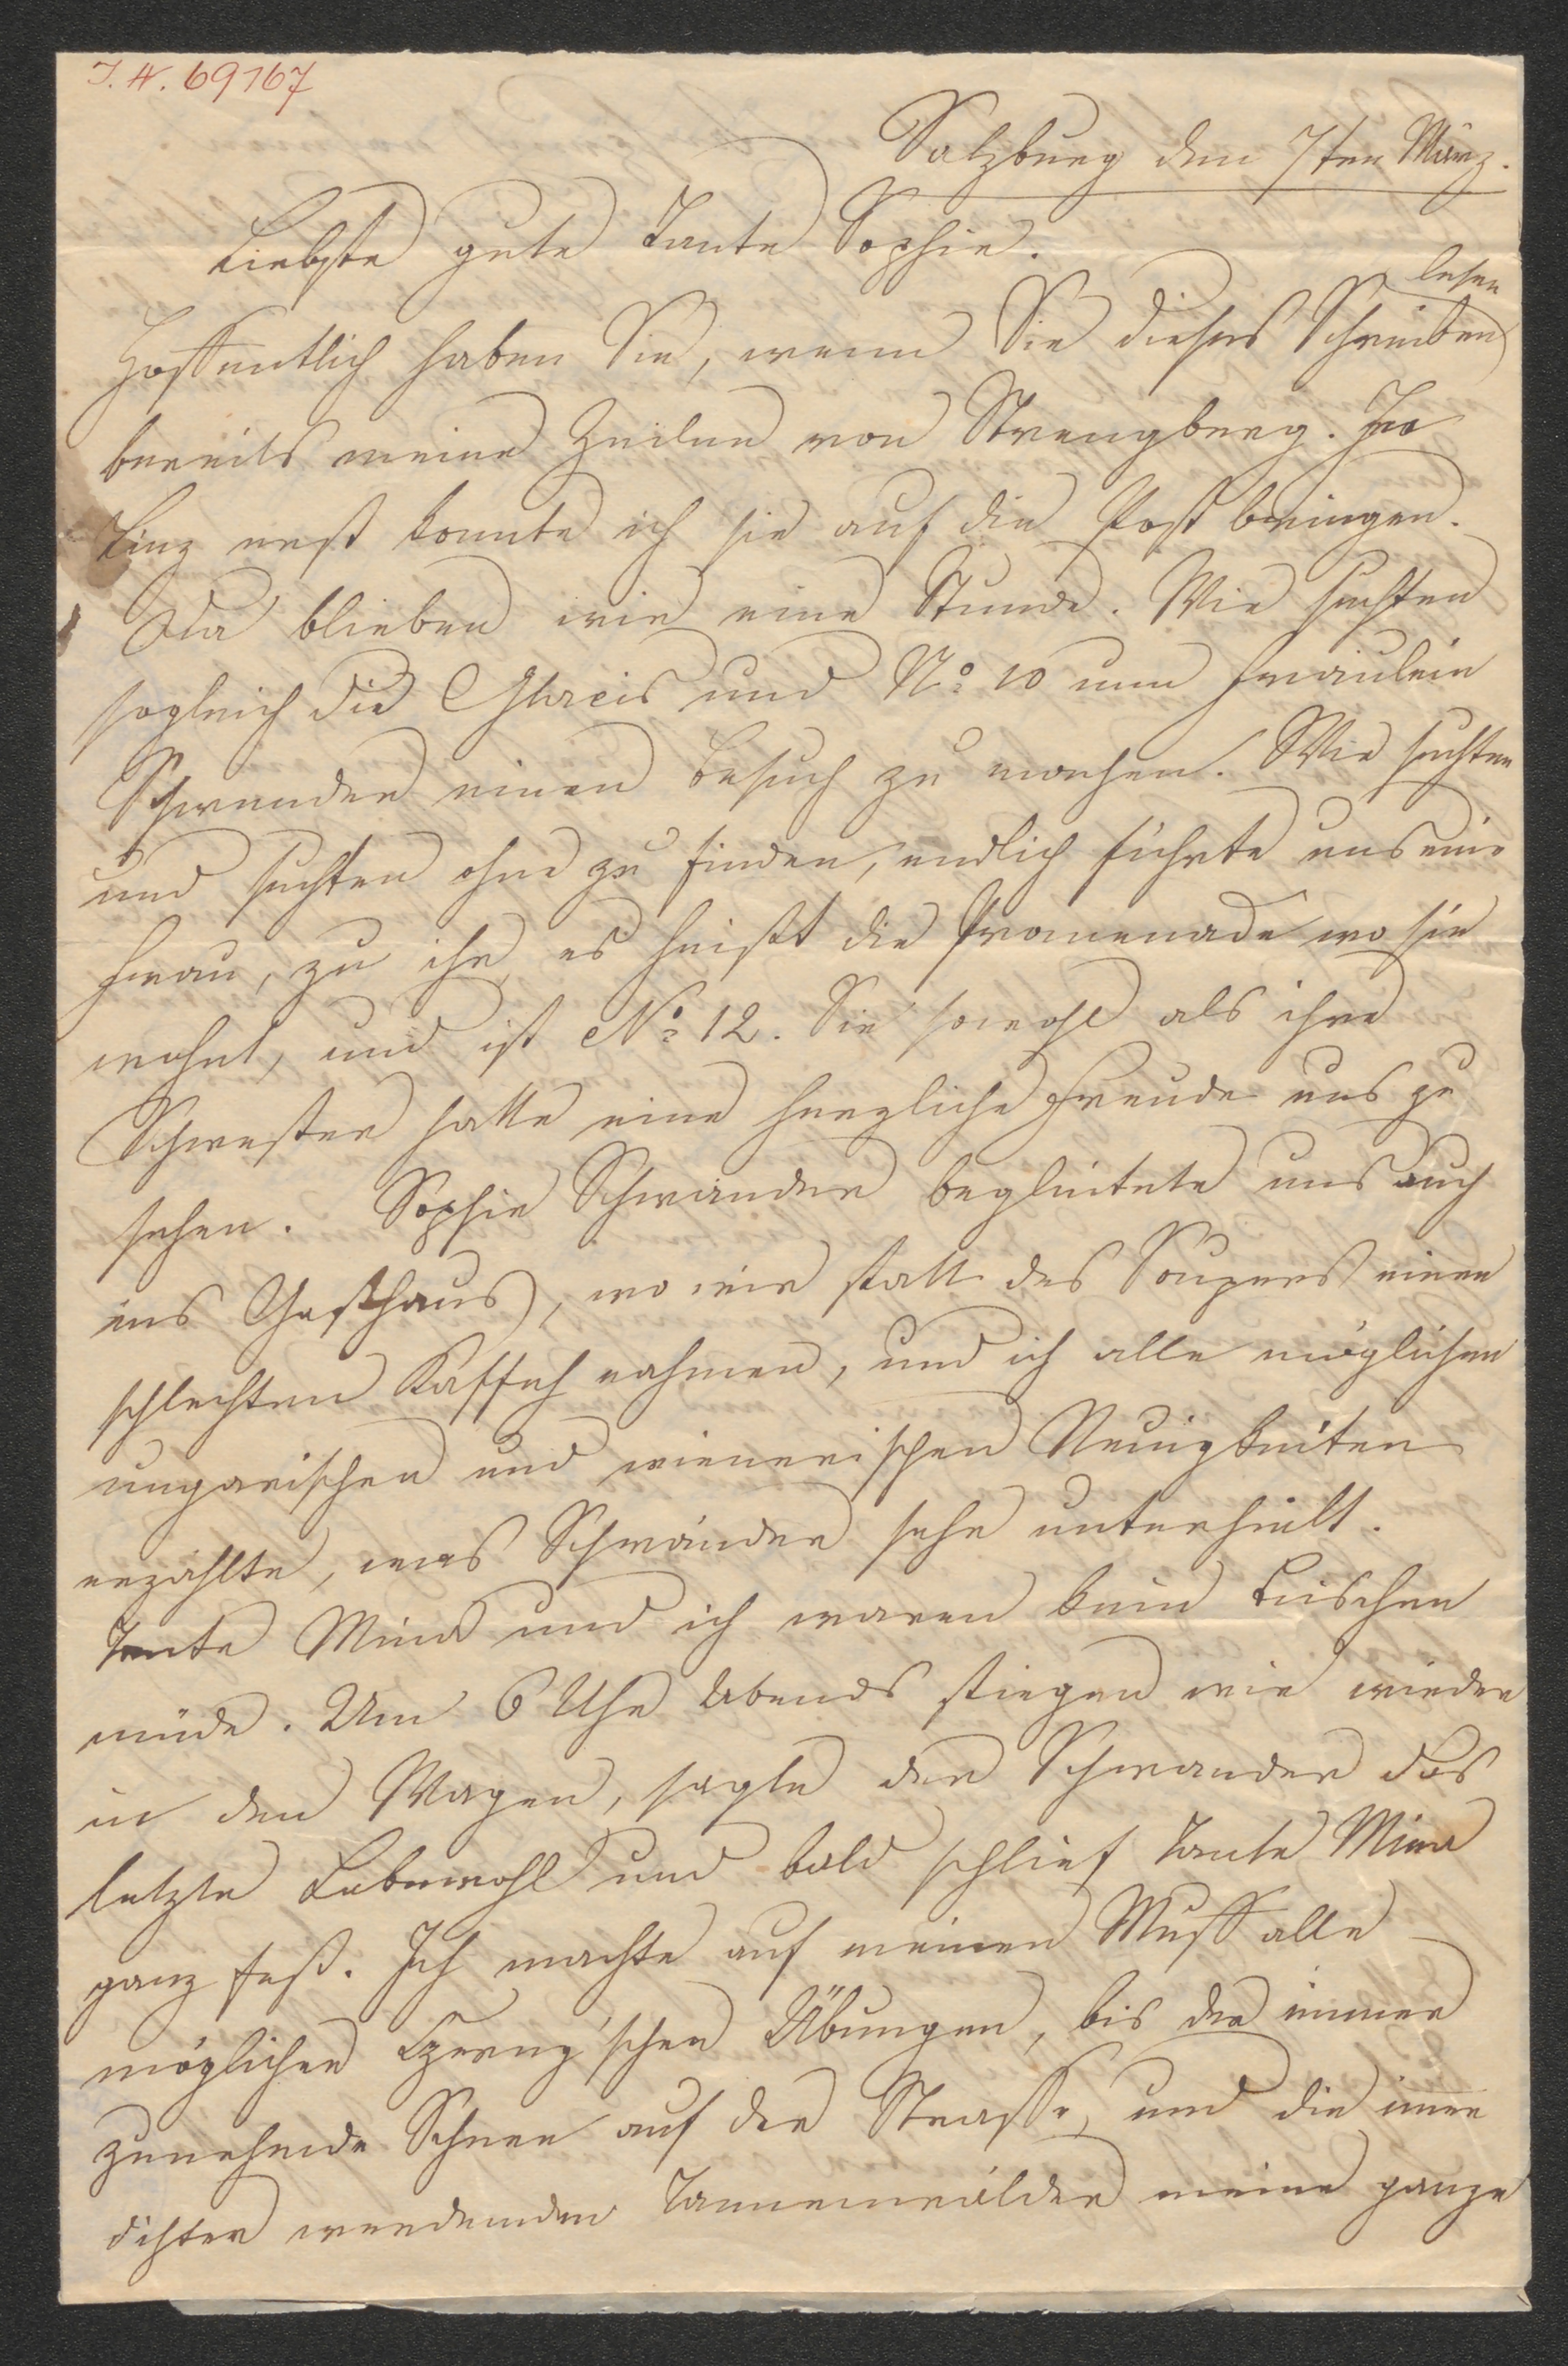 I. N. 69167
Salzburg den 7ten März.
Liebste gute Tante Sophie.
lesen
Hoffentlich haben Sie, wenn Sie dieses Schreiben
bereits meine Zeilen von Strengberg. In
Linz erst konnte ich sie auf die Post bringen.
Da blieben wir eine Stunde. Wir suchten
sogleich die Glacis und No 10 um Fräulein
Schwender einen Besuch zu machen. Wir suchten
und suchten ohne zu finden, endlich führte uns eine
Frau, zu ihr, es heißt die Promenade wo sie
wohnt, und ist No 12. Sie sowohl als ihre
Schwester hatte eine herzliche Freude uns zu
sehen. Sophie Schwänder begleitete uns auch
ins Gasthaus, wo wir statt des Soupers einen
schlechten Kaffeh nahmen, und ich alle möglichen
ungarischen und wienerischen Neuigkeiten
erzählte, was Schwänder sehr unterhielt.
Tante Mina und ich waren kein Bischen
müde. Um 6 Uhr Abends stiegen wir wieder
in den Wagen, sagte der Schwander das
letzte Lebewohl und bald schlief Tante Mina
ganz fest. Ich machte auf meinen Muff alle
möglichen Czerny'schen Übungen, bis der immer
zunehmende Schnee auf der Strasse, und die immer
dichter werdenden Tannenwälder meine ganze